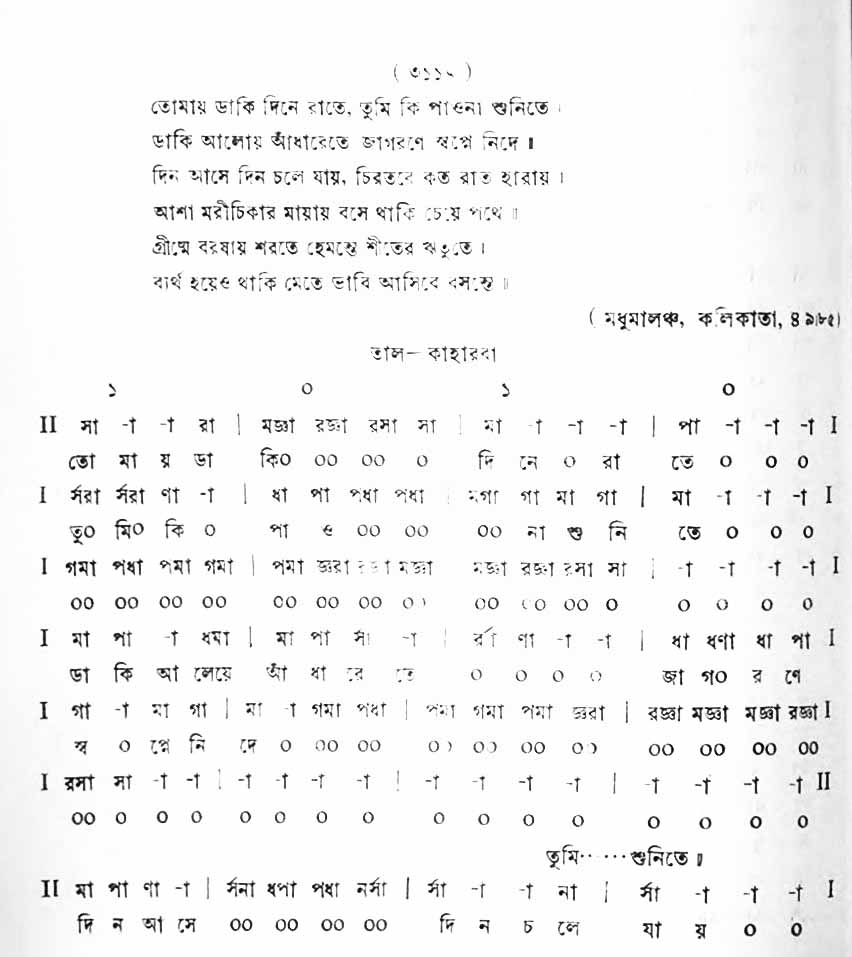 ( ৩১১৯ )
তোমায় ডাকি দিনে রাতে, তুমি কি পাওনা শুনিতে।
ডাকি আলোয় আঁধারেতে জাগরণে স্বপ্নে নিদে॥
দিন আসে দিন চলে যায়, চিরতরে কত রাত হারায়।
আশা মরীচিকার মায়ায় বসে থাকি চেয়ে পথে॥
গ্রীষ্মে বরষায় শরতে হেমন্তে শীতের ঋতুতে।
ব্যর্থ হয়েও থাকি মেতে ভাবি আসিবে বসন্তে॥
( মধুমালঞ্চ, কলিকাতা,
তাল— কাহারবা
১ ০ ১ ০
II সা -া -া রা | মজ্ঞা রজ্ঞা রসা সা | মা -া -া -া | পা -া -া -া I
তো মা য় ডা কি০ ০০ ০০ ০ দি নে ০ রা তে ০ ০ ০
I র্সরা র্সরা ণা -া | ধা পা পধা পধা | মগা গা মা গা | মা -া -া -া I
তু০ মি০ কি ০ পা ও ০০ ০০ ০০ না শু নি তে ০ ০ ০
I গমা পধা পমা গমা | পমা জ্ঞরা রজ্ঞা মজ্ঞা মজ্ঞা রজ্ঞা রসা সা | -া -া -া -া I
০০ ০০ ০০ ০০ ০০ ০০ ০০ ০০ ০০ ০০ ০০ ০ ০ ০ ০ ০
I মা পা -া ধমা | মা পা র্সা -া | র্রা ণা -া -া | ধা ধণা ধা পা I
ডা কি আ লেয়ে আঁ ধা রে তে ০ ০ ০ ০ জা গ০ র ণে
I গা -া মা গা | মা -া গমা পধা | পমা গমা পমা জ্ঞরা | রজ্ঞা মজ্ঞা মজ্ঞা রজ্ঞা I
স্ব ০ প্নে নি দে ০ ০০ ০০ ০০ ০০ ০০ ০০ ০০ ০০ ০০ ০০
I রসা সা -া -া | -া -া -া -া | -া -া -া -া | -া -া -া -া II
০০ ০ ০ ০ ০ ০ ০ ০ ০ ০ ০ ০ ০ ০ ০ ০
তুমি······শুনিতে॥
II মা পা ণা -া | র্সনা ধপা পধা নর্সা | র্সা -া -া না | র্সা -া -া -া I
দি ন আ সে ০০ ০০ ০০ ০০ দি ন চ লে যা য় ০ ০